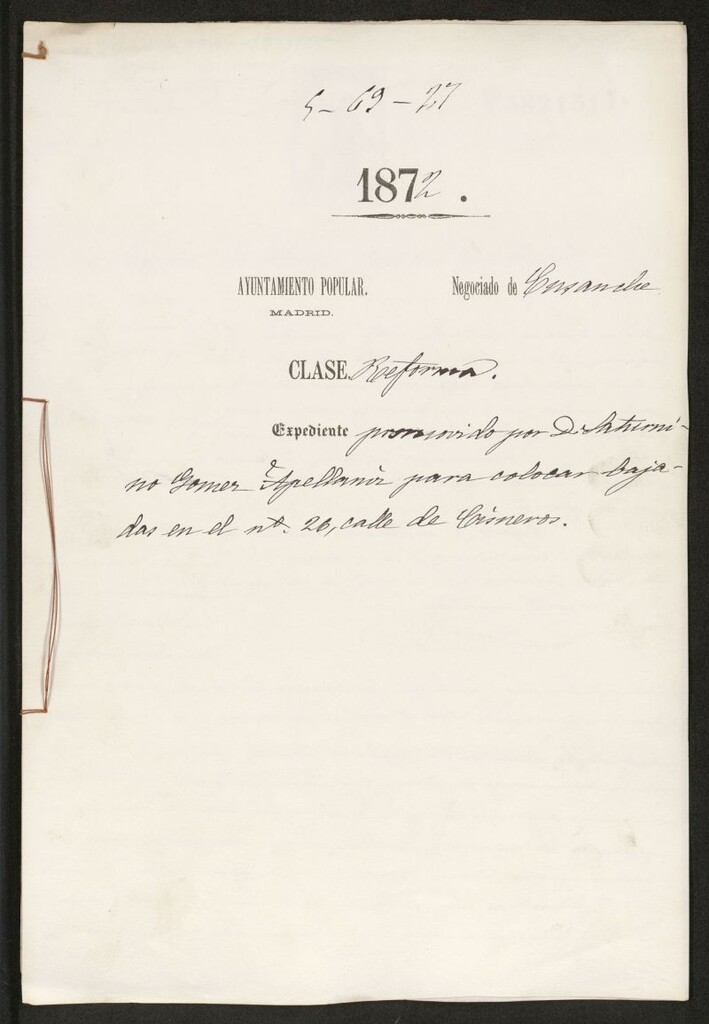 5-69-27
1872.
AYUNTAMIENTO POPULAR.
MADRID.
Negociado de Ensanche
CLASE. Reforma.
Expediente promovido por Dn Saturni-
no Gomez Apellaniz para colocar baja-
das en el nº. 26, calle de Cisneros.